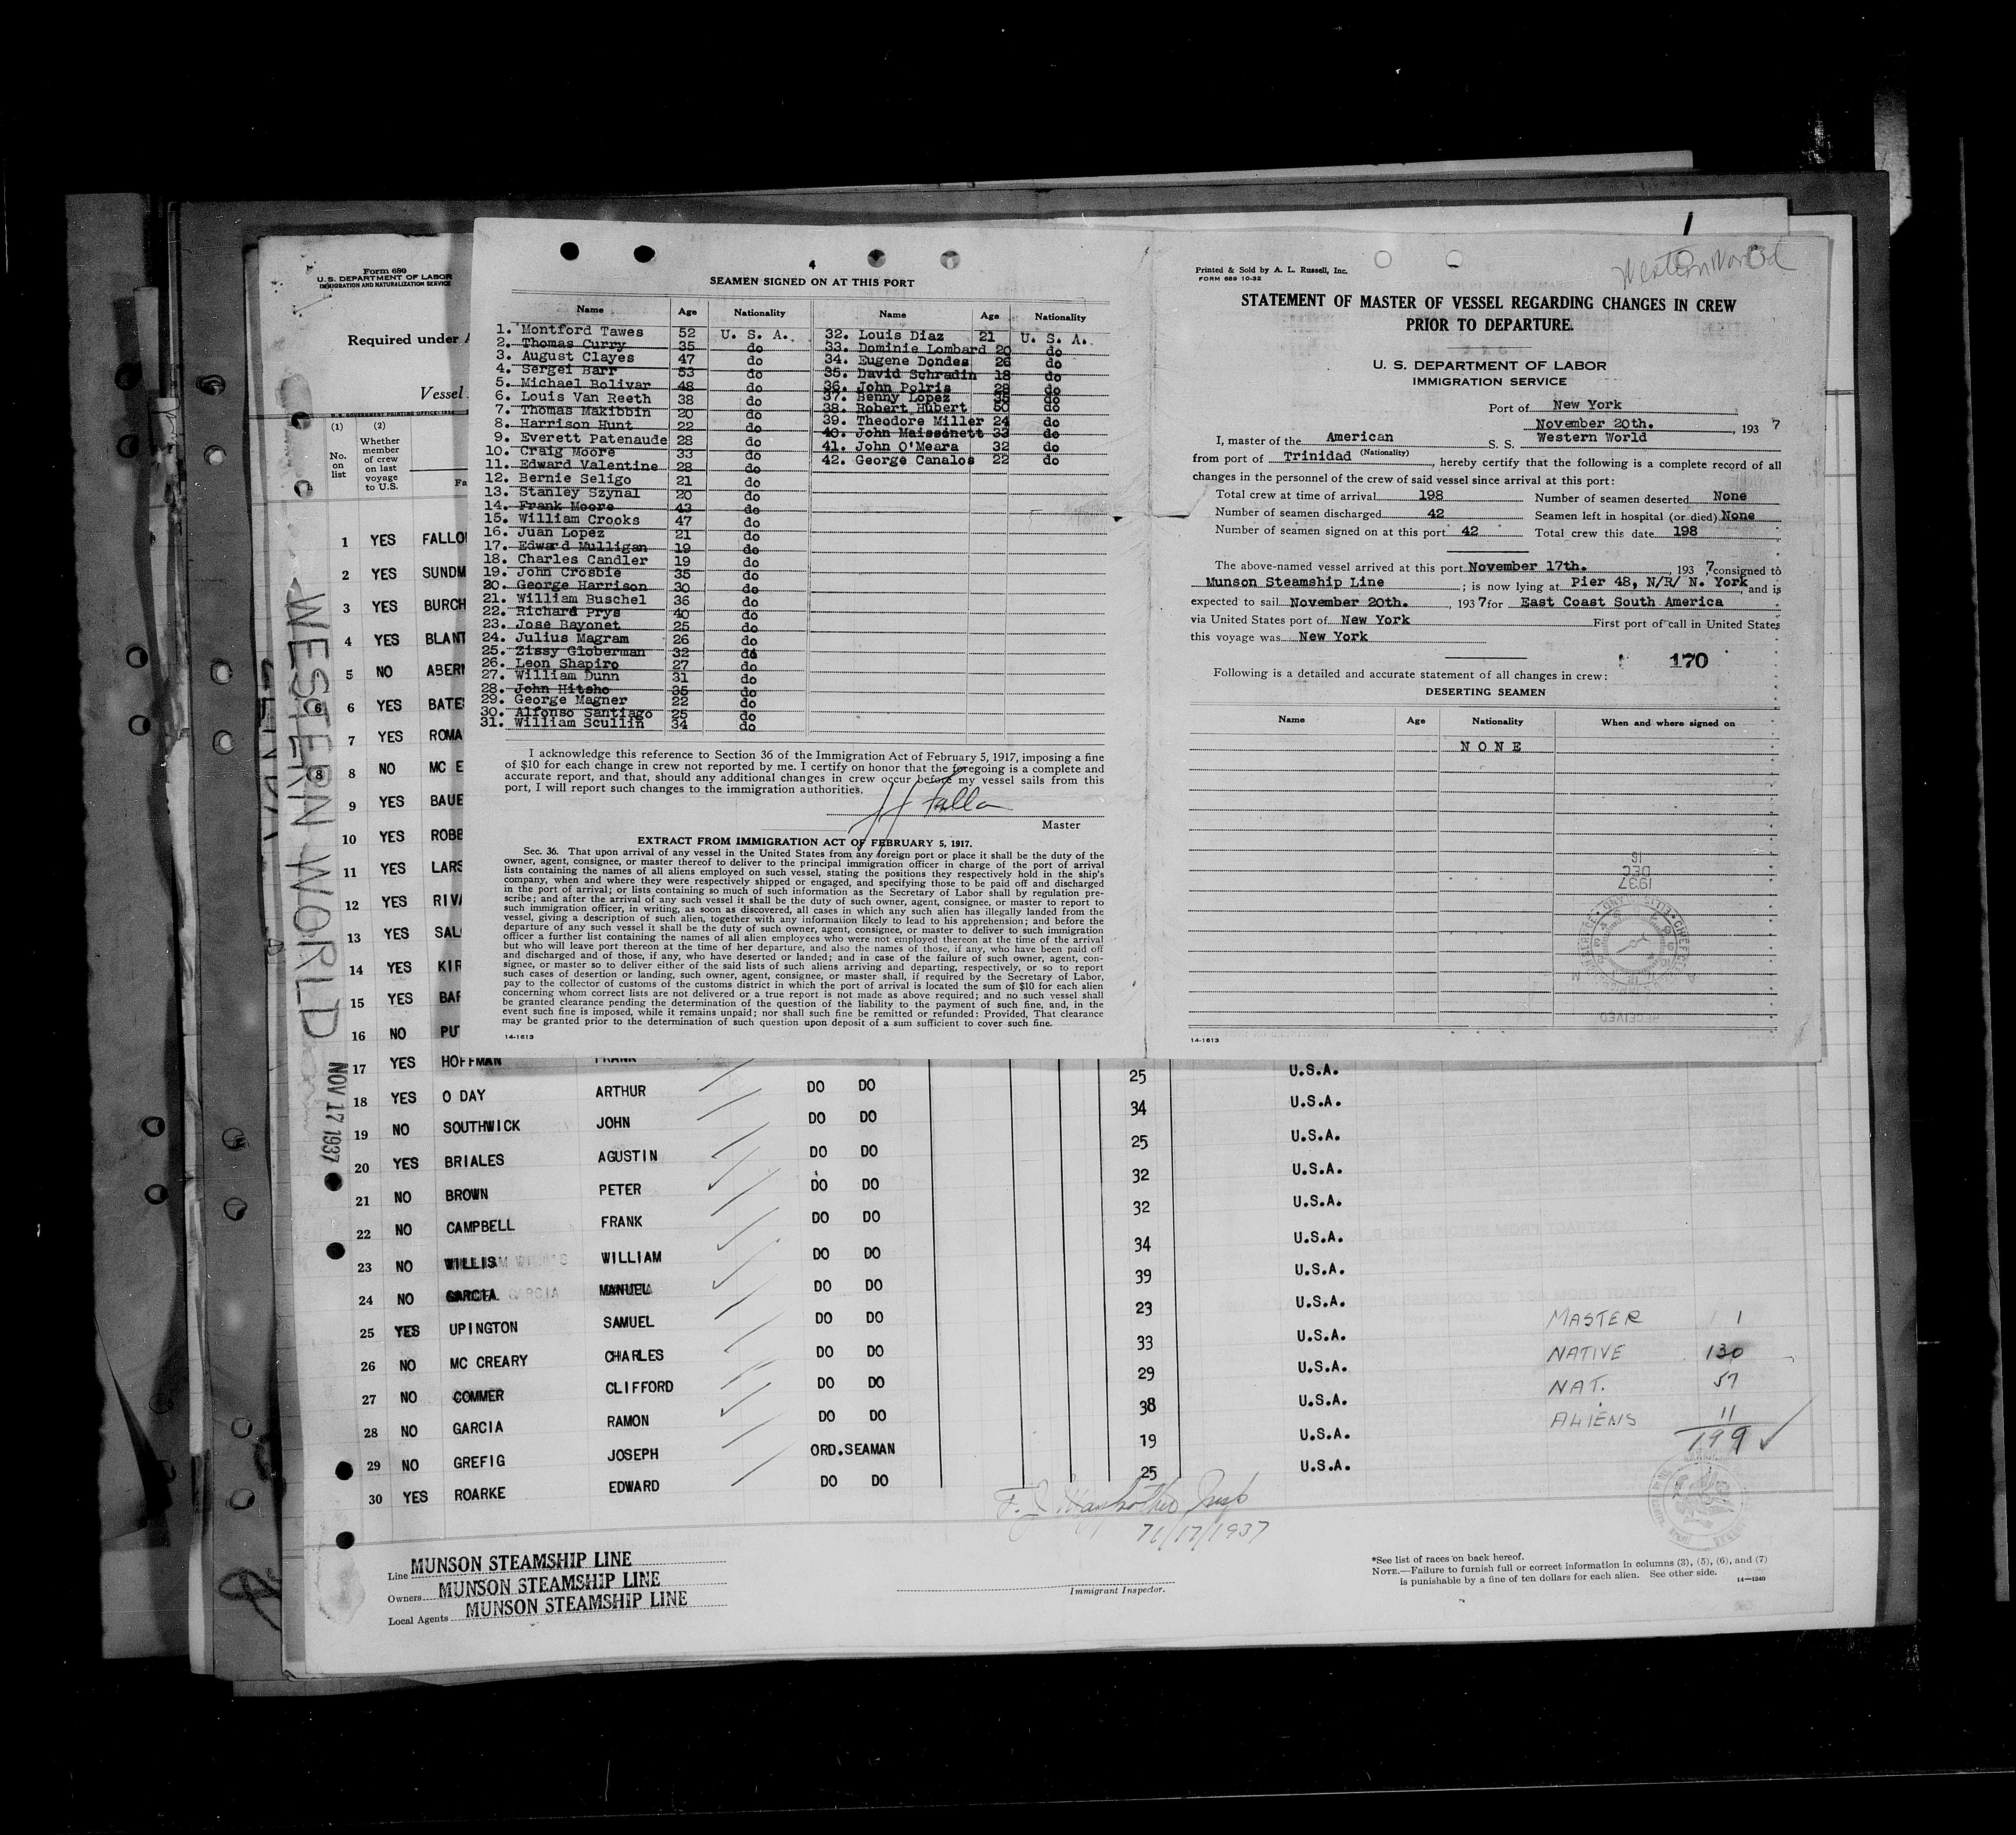 Form 680
U. S. DEPARTMENT OF LABOR
IMMIGRATION AND NATURALIZATION SERVICE
Required under
Vessel
(1) (2)
No. on list
Whether member of crew on last voyage to U.S.
WESTERN WORLD
NOV 17 1937
1 YES FALLO
2 YES SUNDM
3 YES BURCH
4 YES BLANT
5 NO ABERN
6 YES BATE
7 YES ROMA
8 NO MC E
9 YES BAUE
10 YES ROBE
11 YES LARS
12 YES RIV
13 YES SAL
14 YES KIR
15 YES BAR
16 NO PUT
4
SEAMEN SIGNED ON AT THIS PORT
Name Age Nationality Name Age Nationality
1. Montford Tawes 52 U. S. A. 32. Louis Diaz 21 U. S. A.
2. Thomas Curry 35 do 33. Dominie Lombard 20 do
3. August Clayes 47 do 34. Eugene Dondes 26 do
4. Sergei Barr 53 do 35. David Schradin 18 do
5. Michael Bolivar 48 do 36. John Polris 28 do
6. Louis Van Reeth 38 do 37. Benny Lopez 35 do
7. Thomas Makibbin 20 do 38. Robert Hubert 50 do
8. Harrison Hunt 22 do 39. Theodore Miller 24 do
9. Everett Patenaude 28 do 40. John Maisschett 33 do
10. Craig Moore 33 do 41. John O'Meara 32 do
11. Edward Valentine 28 do 42. George Canalos 22 do
12. Bernie Seligo 21 do
13. Stanley Szynal 20 do
14. Frank Moore 43 do
15. William Crooks 47 do
16. Juan Lopez 21 do
17. Edward Mulligan 19 do
18. Charles Candler 19 do
19. John Crosbie 35 do
20. George Harrison 30 do
21. William Buschel 36 do
22. Richard Prys 40 do
23. Jose Bayonet 25 do
24. Julius Magram 26 do
25. Zissy Globerman 32 do
26. Leon Shapiro 27 do
27. William Dunn 31 do
28. John Hitsho 35 do
29. George Magner 22 do
30. Alfonso Santiago 25 do
31. William Scullin 34 do
I acknowledge this reference to Section 36 of the Immigration Act of February 5, 1917, imposing a fine
of $10 for each change in crew not reported by me. I certify on honor that the foregoing is a complete and
accurate report, and that, should any additional changes in crew occur before my vessel sails from this
port, I will report such changes to the immigration authorities.
Master
EXTRACT FROM IMMIGRATION ACT OF FEBRUARY 5, 1917.
Sec. 36. That upon arrival of any vessel in the United States from any foreign port or place it shall be the duty of the
owner, agent, consignee, or master thereof to deliver to the principal immigration officer in charge of the port of arrival
lists containing the names of all aliens employed on such vessel, stating the positions they respectively hold in the ship's
company, when and where they were respectively shipped or engaged, and specifying those to be paid off and discharged
in the port of arrival; or lists containing so much of such information as the Secretary of Labor shall by regulation pre-
scribe; and after the arrival of any such vessel it shall be the duty of such owner, agent, consignee, or master to report to
such immigration officer, in writing, as soon as discovered, all cases in which any such alien has illegally landed from the
vessel, giving a description of such alien, together with any information likely to lead to his apprehension; and before the
departure of any such vessel it shall be the duty of such owner, agent, consignee, or master to deliver to such immigration
officer a further list containing the names of all alien employees who were not employed thereon at the time of the arrival
but who will leave port thereon at the time of her departure, and also the names of those, if any, who have been paid off
and discharged and of those, if any, who have deserted or landed; and in case of the failure of such owner, agent, con-
signee, or master so to deliver either of the said lists of such aliens arriving and departing, respectively, or so to report
such cases of desertion or landing, such owner, agent, consignee, or master shall, if required by the Secretary of Labor,
pay to the collector of customs of the customs district in which the port of arrival is located the sum of $10 for each alien
concerning whom correct lists are not delivered or a true report is not made as above required; and no such vessel shall
be granted clearance pending the determination of the question of the liability to the payment of such fine, and, in the
event such fine is imposed, while it remains unpaid; nor shall such fine be remitted or refunded: Provided, That clearance
may be granted prior to the determination of such question upon deposit of a sum sufficient to cover such fine.
14-1613
Western World
Printed & Sold by A. L. Russell, Inc.
FORM 689 10-32
STATEMENT OF MASTER OF VESSEL REGARDING CHANGES IN CREW
PRIOR TO DEPARTURE.
U. S. DEPARTMENT OF LABOR
IMMIGRATION SERVICE
Port of New York
November 20th. , 193 7
I, master of the American S. S. Western World
(Nationality)
from port of Trinidad , hereby certify that the following is a complete record of all
changes in the personnel of the crew of said vessel since arrival at this port:
Total crew at time of arrival 198 Number of seamen deserted None
Number of seamen discharged 42 Seamen left in hospital (or died) None
Number of seamen signed on at this port 42 Total crew this date 198
The above-named vessel arrived at this port November 17th. , 193 7 consigned to
Munson Steamship Line ; is now lying at Pier 48, N/R/ N. York, and is
expected to sail November 20th. , 1937 for East Coast South America
via United States port of New York First port of call in United States
this voyage was New York
170
Following is a detailed and accurate statement of all changes in crew:
DESERTING SEAMEN
Name Age Nationality When and where signed on
NONE
1937
DEC
16
RECEIVED
14-1613
17 YES HOFFMAN FRANK 25 U.S.A.
18 YES O DAY ARTHUR DO DO 34 U.S.A.
19 NO SOUTHWICK JOHN DO DO 25 U.S.A.
20 YES BRIALES AGUSTIN DO DO 32 U.S.A.
21 NO BROWN PETER DO DO 32 U.S.A.
22 NO CAMPBELL FRANK DO DO 34 U.S.A.
23 NO WILLIS WILLIAM DO DO 39 U.S.A.
24 NO GARCIA MANUEL DO DO 23 U.S.A.
25 YES UPINGTON SAMUEL DO DO 33 U.S.A.
26 NO MC CREARY CHARLES DO DO 29 U.S.A.
27 NO COMMER CLIFFORD DO DO 38 U.S.A.
28 NO GARCIA RAMON DO DO 19 U.S.A.
29 NO GREFIG JOSEPH ORD.SEAMAN 25 U.S.A.
30 YES ROARKE EDWARD DO DO
MASTER 1
NATIVE 130
NAT. 57
ALIENS 11
199
Line MUNSON STEAMSHIP LINE
Owners MUNSON STEAMSHIP LINE
Local Agents MUNSON STEAMSHIP LINE
Immigrant Inspector.
*See list of races on back hereof.
NOTE.—Failure to furnish full or correct information in columns (3), (5), (6), and (7)
is punishable by a fine of ten dollars for each alien. See other side. 14—1240